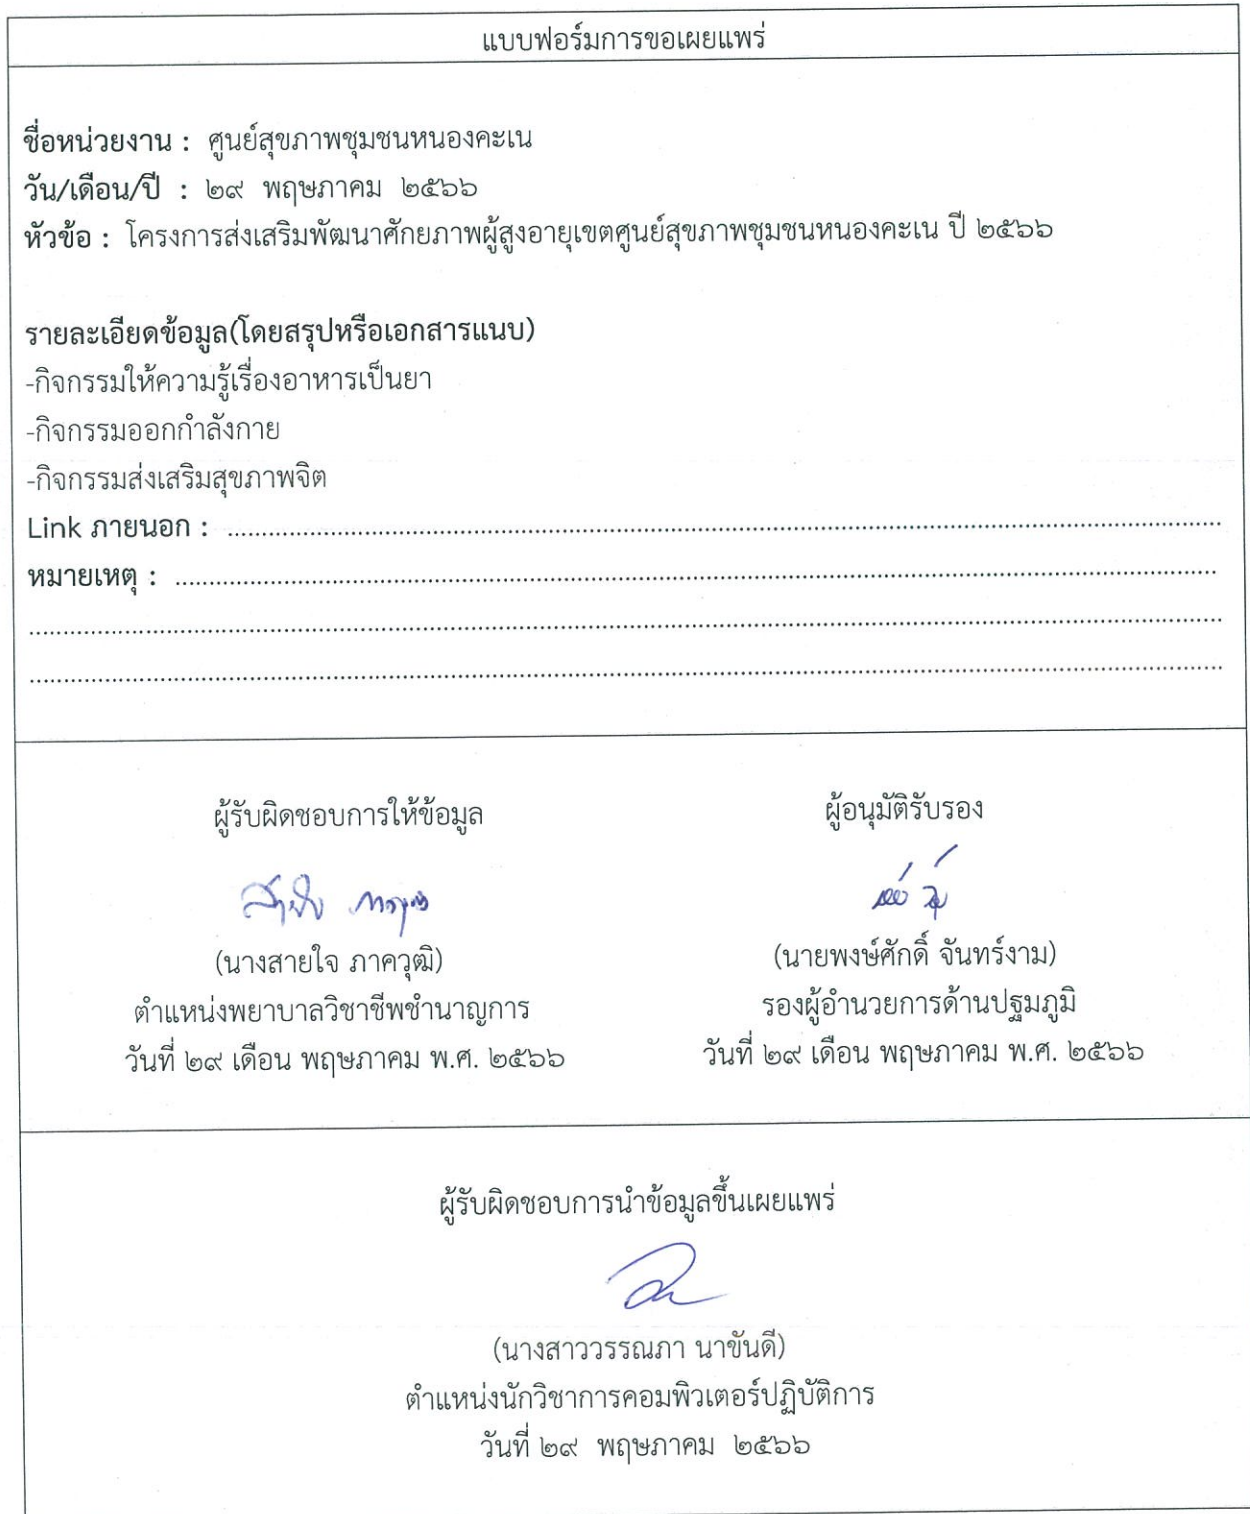 แบบฟอร์มการขอเผยแพร่
ชื่อหน่วยงาน : ศูนย์สุขภาพชุมชนหนองคะเน
วัน/เดือน/ปี : ๒๙ พฤษภาคม ๒๕๖๖
หัวข้อ : โครงการส่งเสริมพัฒนาศักยภาพผู้สูงอายุเขตศูนย์สุขภาพชุมชนหนองคะเน ปี ๒๕๖๖
รายละเอียดข้อมูล(โดยสรุปหรือเอกสารแนบ)
-กิจกรรมให้ความรู้เรื่องอาหารเป็นยา
-กิจกรรมออกกำลังกาย
-กิจกรรมส่งเสริมสุขภาพจิต
Link ภายนอก : ........................................................................
หมายเหตุ : ........................................................................
........................................................................
........................................................................
ผู้รับผิดชอบการให้ข้อมูล
(นางสายใจ ภาควุฒิ)
ตำแหน่งพยาบาลวิชาชีพชำนาญการ
วันที่ ๒๙ เดือน พฤษภาคม พ.ศ. ๒๕๖๖
ผู้อนุมัติรับรอง
(นายพงษ์ศักดิ์ จันทร์งาม)
รองผู้อำนวยการด้านปฐมภูมิ
วันที่ ๒๙ เดือน พฤษภาคม พ.ศ. ๒๕๖๖
ผู้รับผิดชอบการนำข้อมูลขึ้นเผยแพร่
(นางสาววรรณภา นาขันดี)
ตำแหน่งนักวิชาการคอมพิวเตอร์ปฏิบัติการ
วันที่ ๒๙ พฤษภาคม ๒๕๖๖